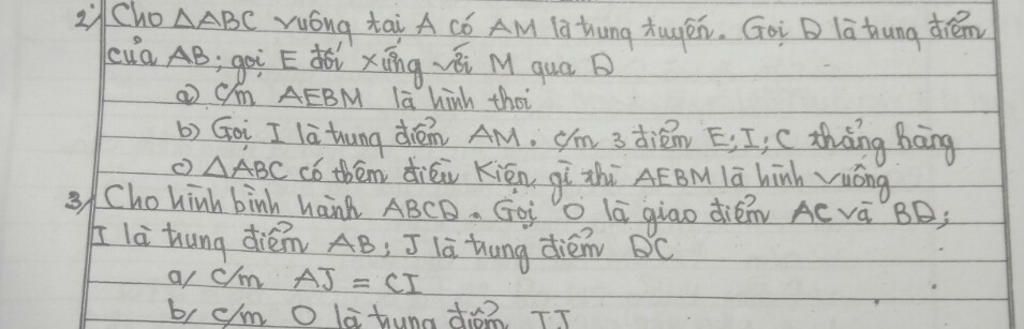 2) Cho △ABC vuông tại A có AM là trung tuyến. Gọi D là trung điểm
của AB; gọi E đối xứng với M qua D
a) c/m AEBM là hình thoi
b) Gọi I là trung điểm AM. c/m 3 điểm E; I; C thẳng hàng
c) △ABC có thêm điều kiện gì thì AEBM là hình vuông
3/ Cho hình bình hành ABCD. Gọi O là giao điểm AC và BD;
I là trung điểm AB; J là trung điểm DC
a/ c/m AJ = CI
b/ c/m O là trung điểm IJ